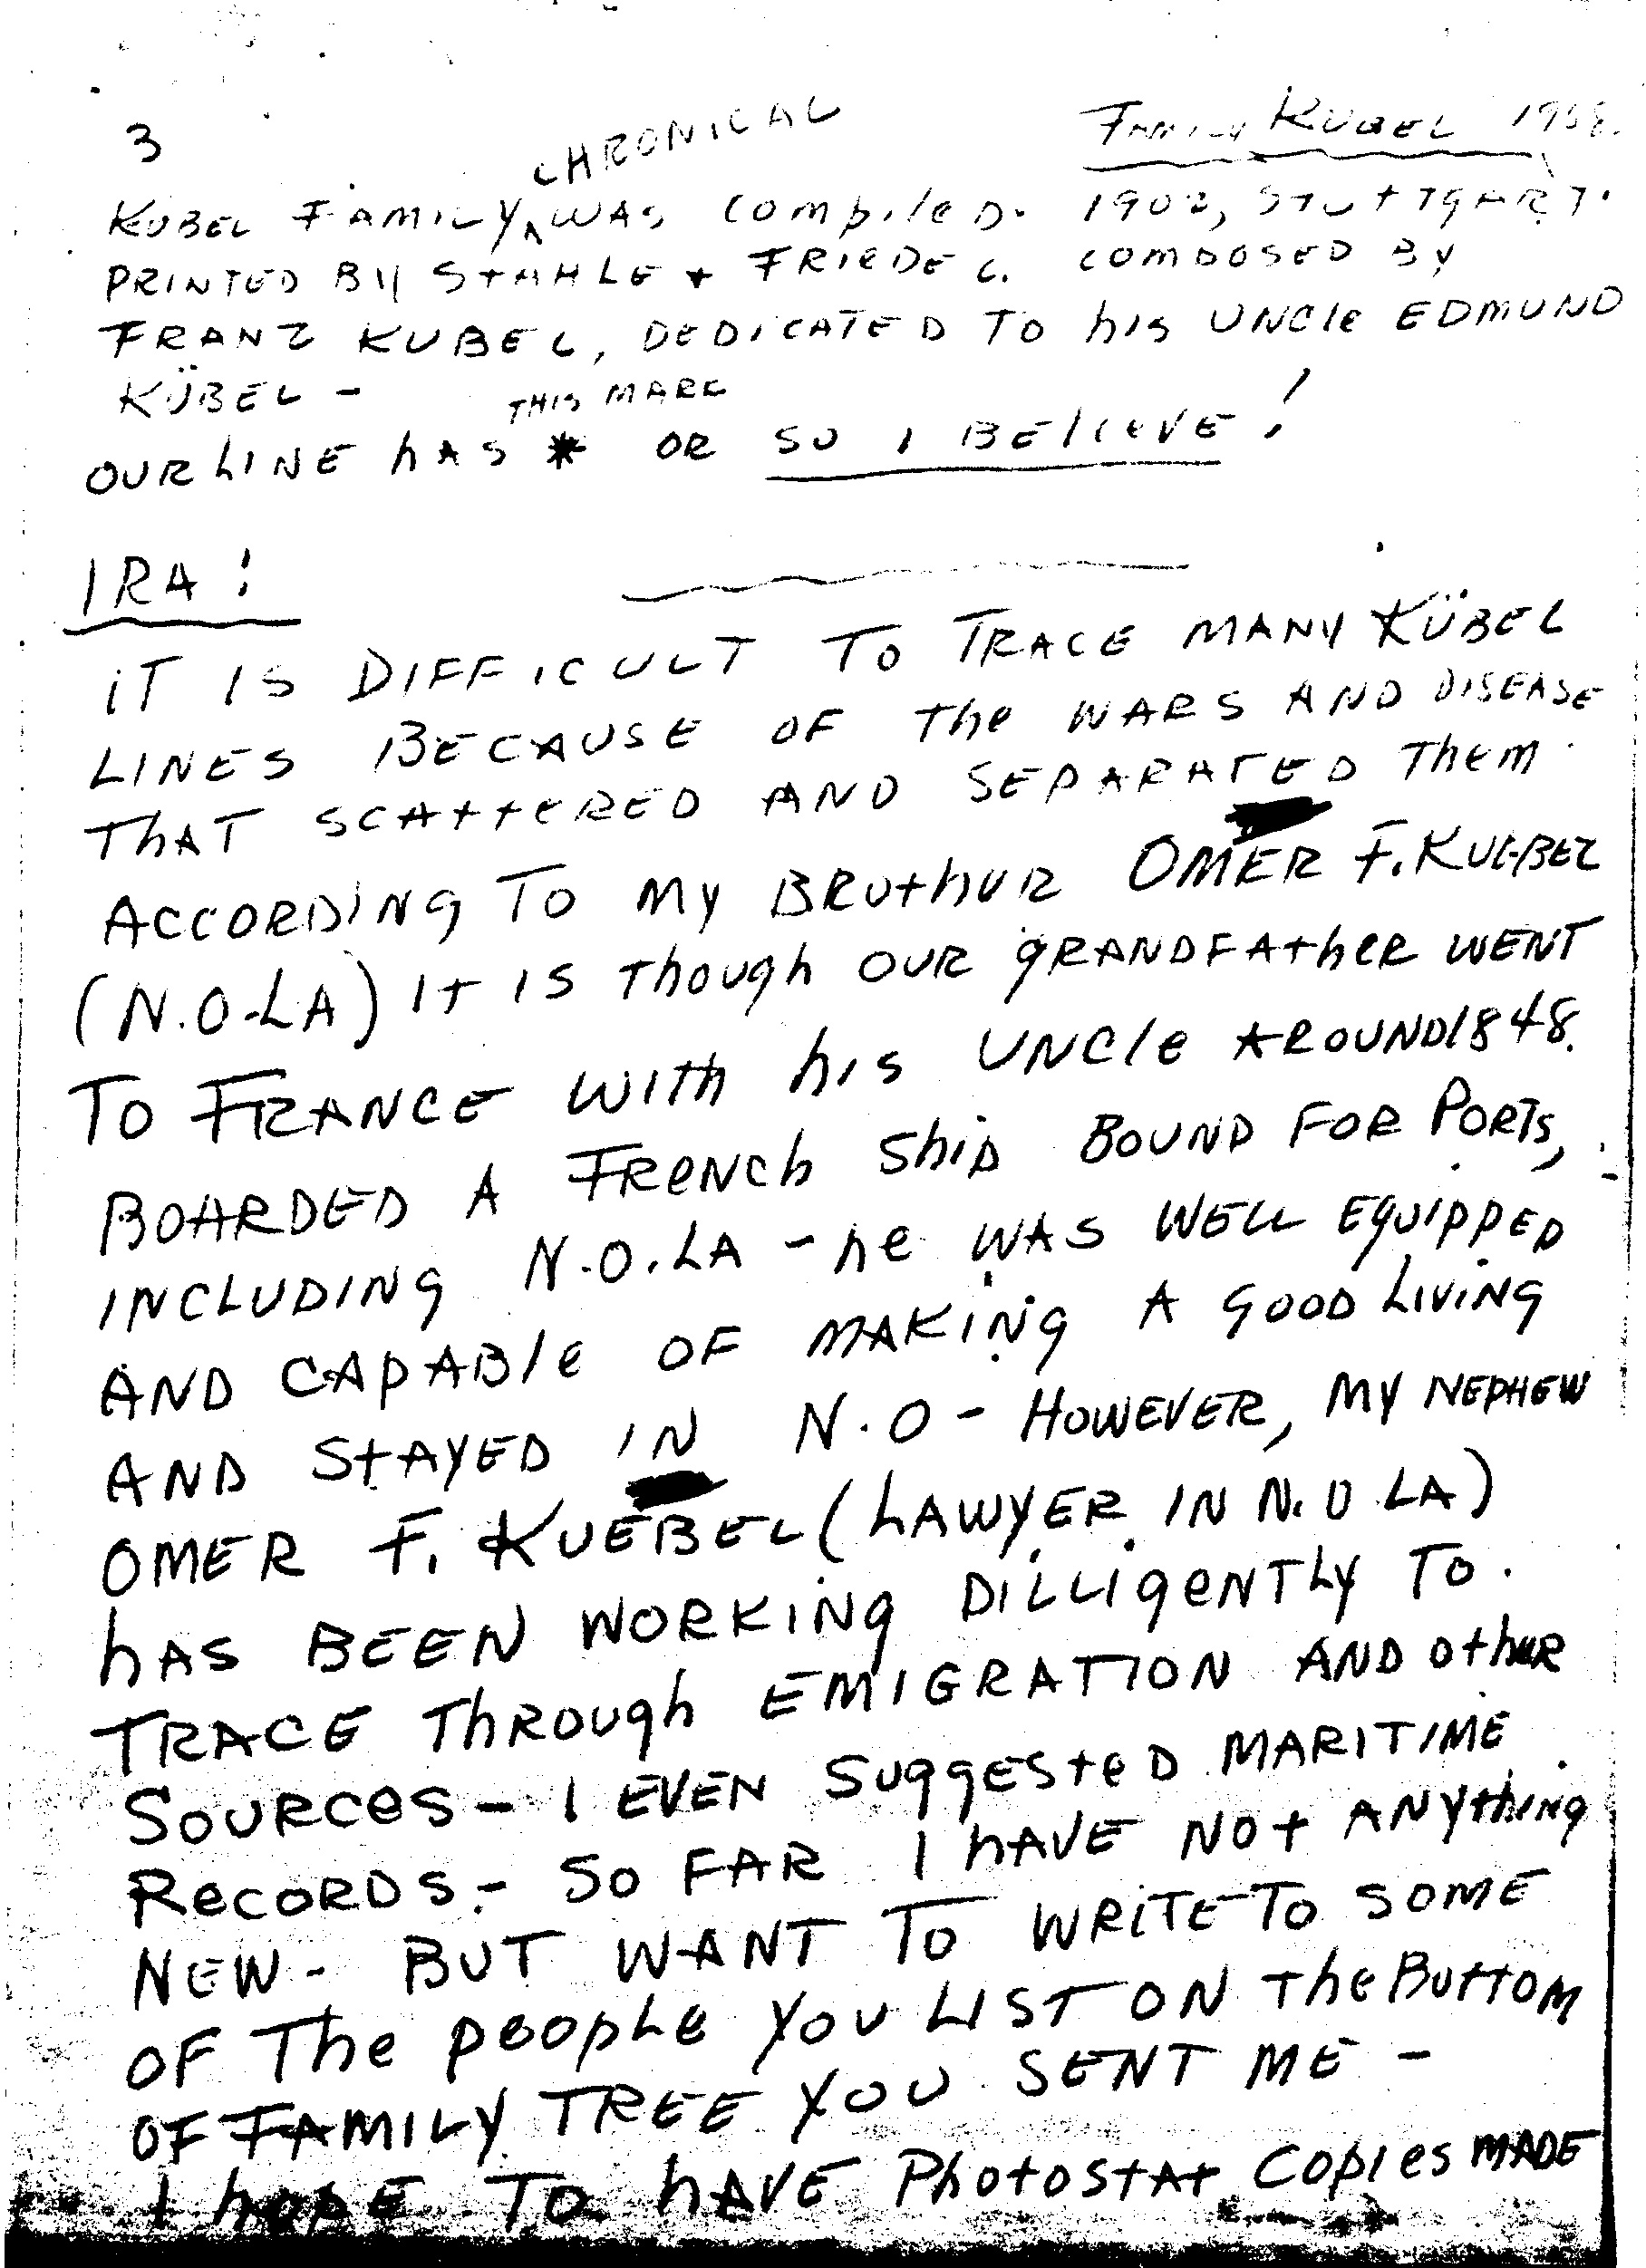 3
CHRONICAL
FAMILY KUBEL 1958.
KUBEL FAMILY ^ WAS COMPILED. 1902, STUTTGART.
PRINTED BY STAHLE + FRIEDEL. COMPOSED BY
FRANZ KUBEL, DEDICATED TO his UNCle EDMUND
KÜBEL -
THIS MARK
OUR LINE hAS * OR SO I BElieVE!
IRA!
iT IS DIFFICULT TO TRACE MANY KÜBEL
LINES BECAUSE OF The WARS AND DISEASE
ThAT SCAttERED AND SEPARATED Them
ACCORDING TO MY BROthUR OMER F. KUEBEL
(N.O-LA) It IS Though OUR gRANDFAtheR WENT
TO FRANCE WITh his UNCle AROUND 1848.
BOARDED A FReNCh ShiP BOUND FOR PORTS,
INCLUDING N.O.LA - he WAS WELL EQUIPPED
AND CAPABle OF MAKING A GOOD LIVING
AND StAYED IN N.O - HOWEVER, MY NEPHEW
OMER F. KUEBEL (LAWYER IN N.O LA)
hAS BEEN WORKING DILLIGeNTLY TO.
TRACE ThROUgh EMIGRATION AND OthER
SOURCeS - I EVEN SUggESteD MARITIME
ReCORDS - SO FAR I hAVE NOt ANYthiNg
NEW - BUT WANT TO WRITE TO SOME
OF The peopLe YOU LIST ON The BOTTOM
OF FAMILY TREE YOU SENT ME -
I hOPE TO hAVE PhOtOStAt COPIeS MADE